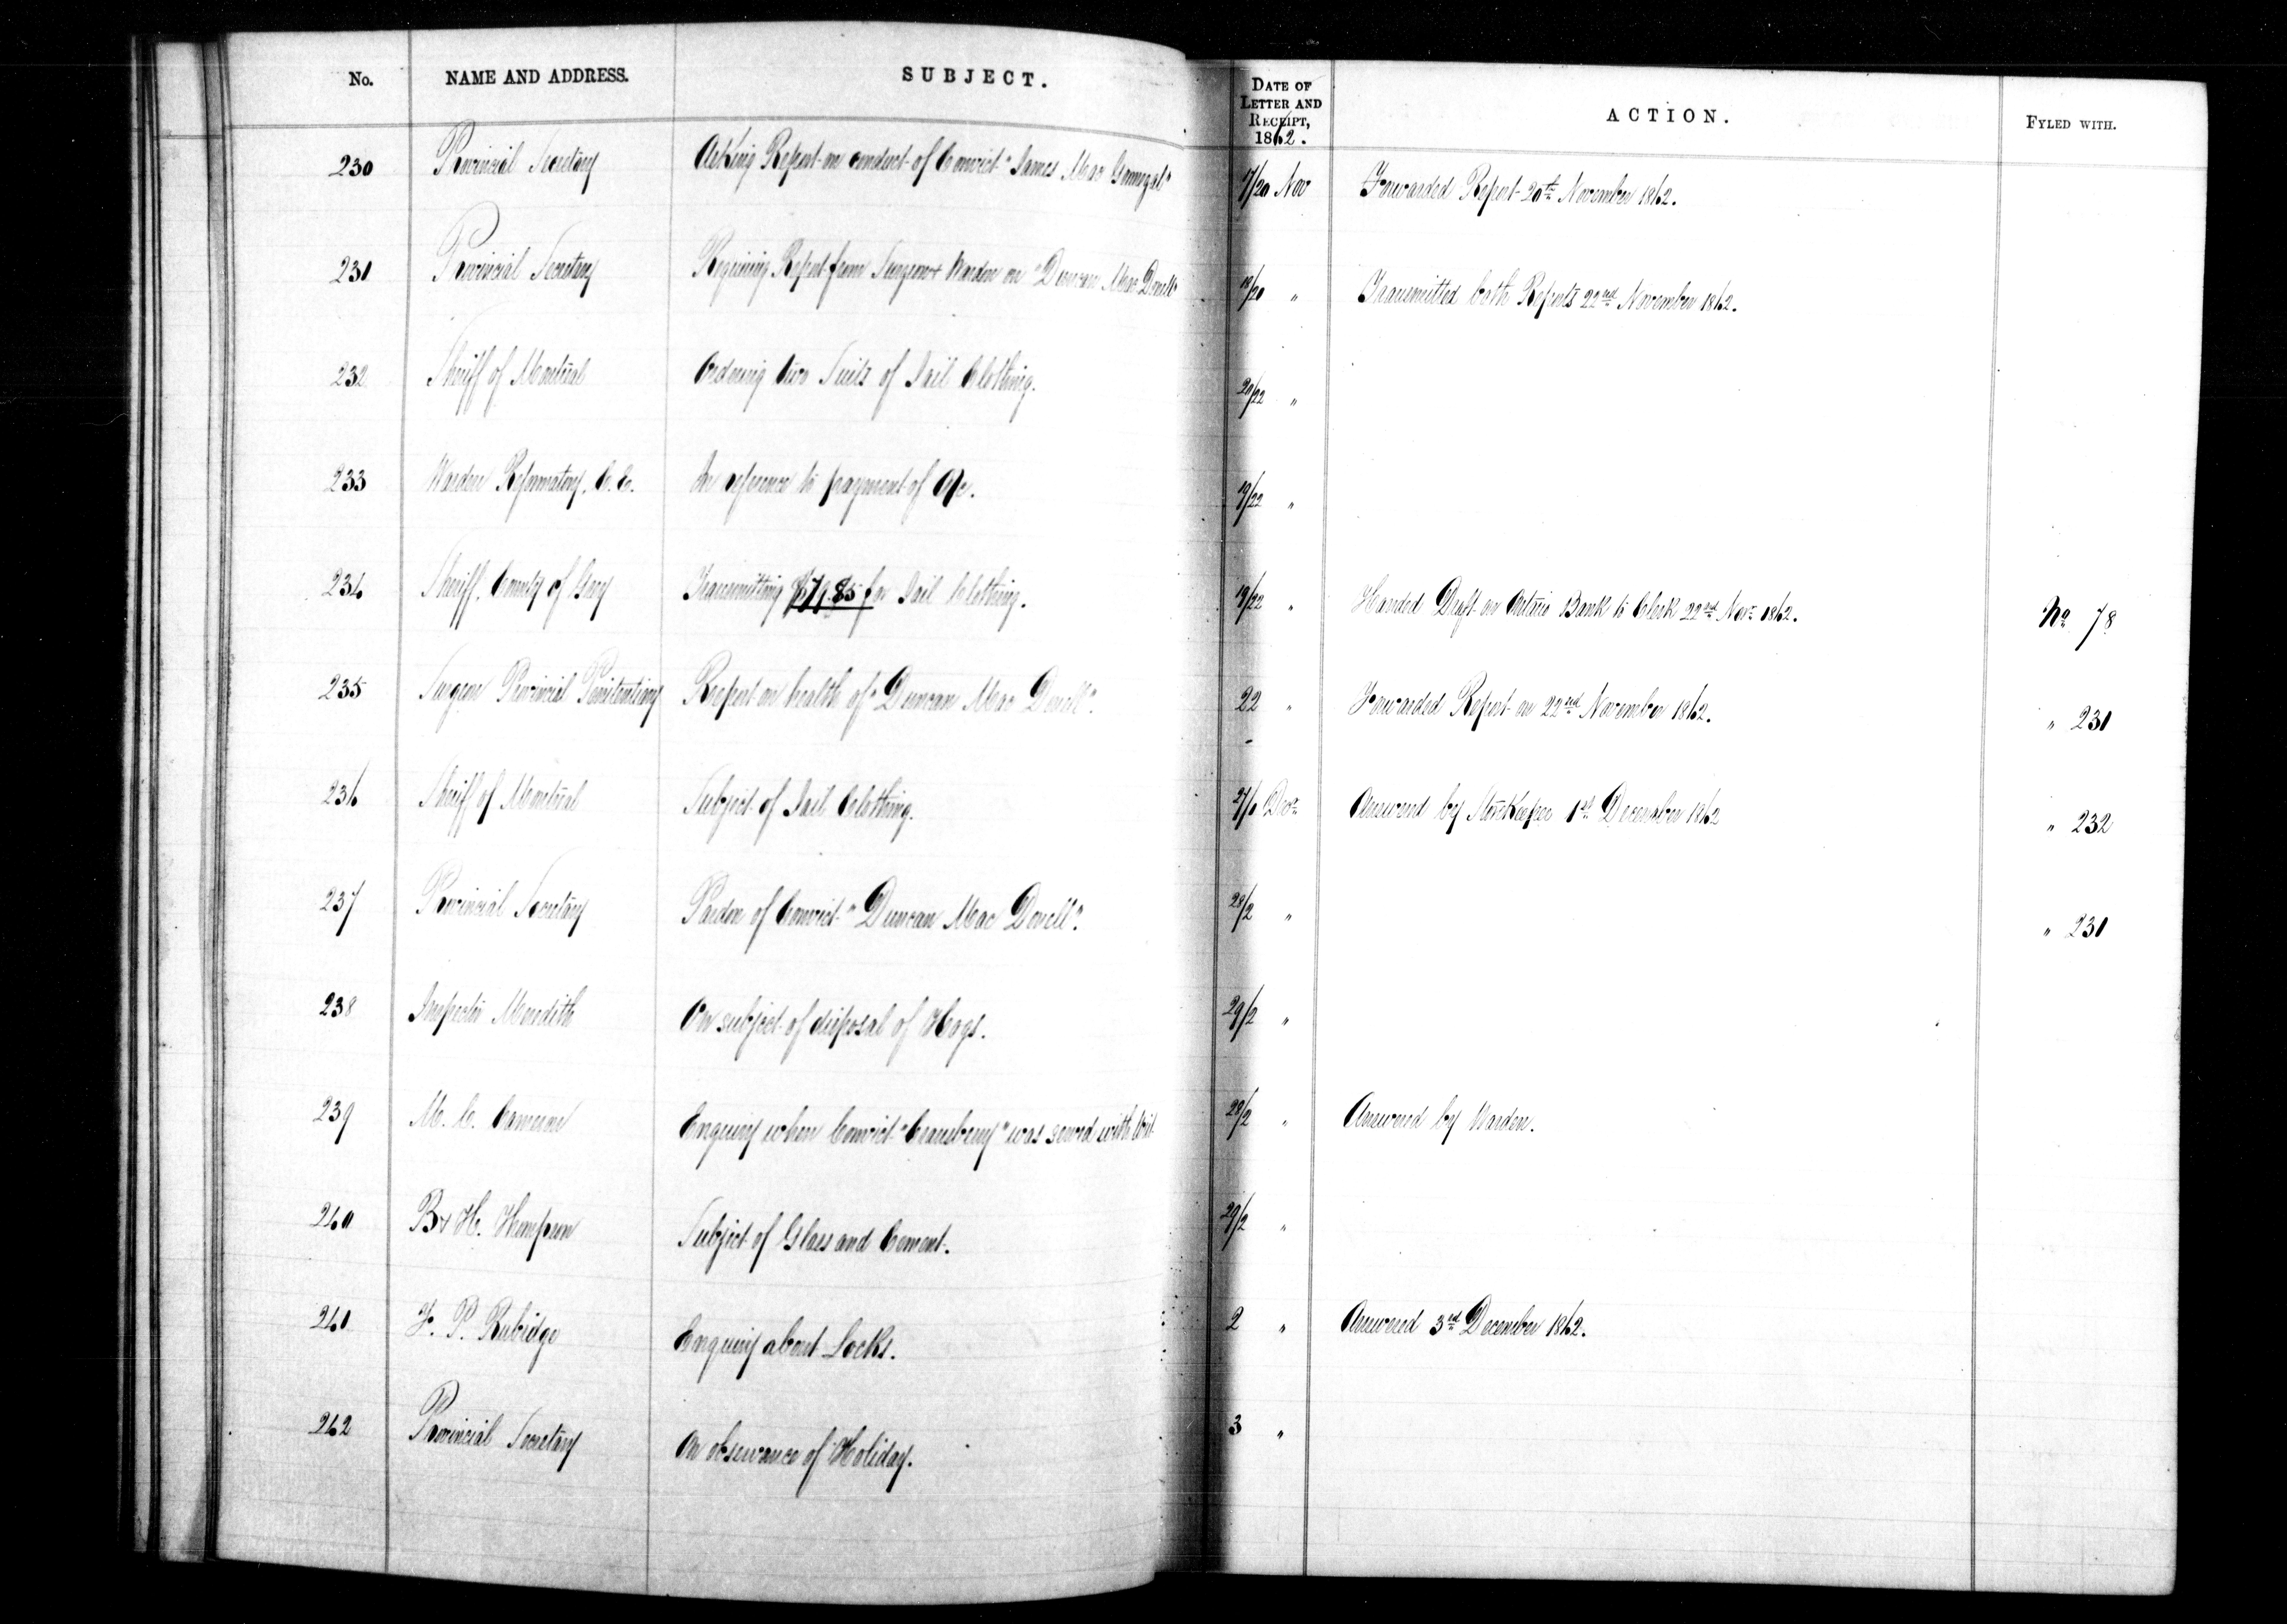 No. NAME AND ADDRESS. SUBJECT. DATE OF LETTER AND RECEIPT, 1862. ACTION. FYLED WITH.
230 Provincial Secretary Asking Report on conduct of Convict "James Mac 17/20 Nov Forwarded Report 20th November 1862.
231 Provincial Secretary Requiring Report from Surgeon & Warden on "Duncan Mac Donell" 18/20 " Transmitted both Reports 22nd November 1862.
232 Sheriff of Montreal Ordering two Suits of Jail Clothing. 20/22 "
233 Warden Reformatory, C.E. In reference to payment of a/c. 19/22 "
234 Sheriff, County of Grey Transmitting for Jail Clothing. 19/22 " Handed Draft on Ontario Bank to Clerk 22nd Novr 1862. No 78
235 Surgeon Provincial Penitentiary Report on health of "Duncan Mac Donell". 22 " Forwarded Report on 22nd November 1862. " 231
236 Sheriff of Montreal Subject of Jail Clothing. 27/1 Decr Answered by Storekeeper 1st December 1862 " 232
237 Provincial Secretary Pardon of Convict "Duncan Mac Donell". 28/2 " " 231
238 Inspector Meredith On subject of disposal of Hogs. 29/2 "
239 M. C. Cameron Enquiry when Convict "Cransbury" was served with Writ 28/2 " Answered by Warden.
240 B & H. Subject of Glass and Cement. 29/2 "
241 F. P. Rubidge Enquiry about Locks. 2 " Answered 3rd December 1862.
242 Provincial Secretary On observance of Holiday. 3 "